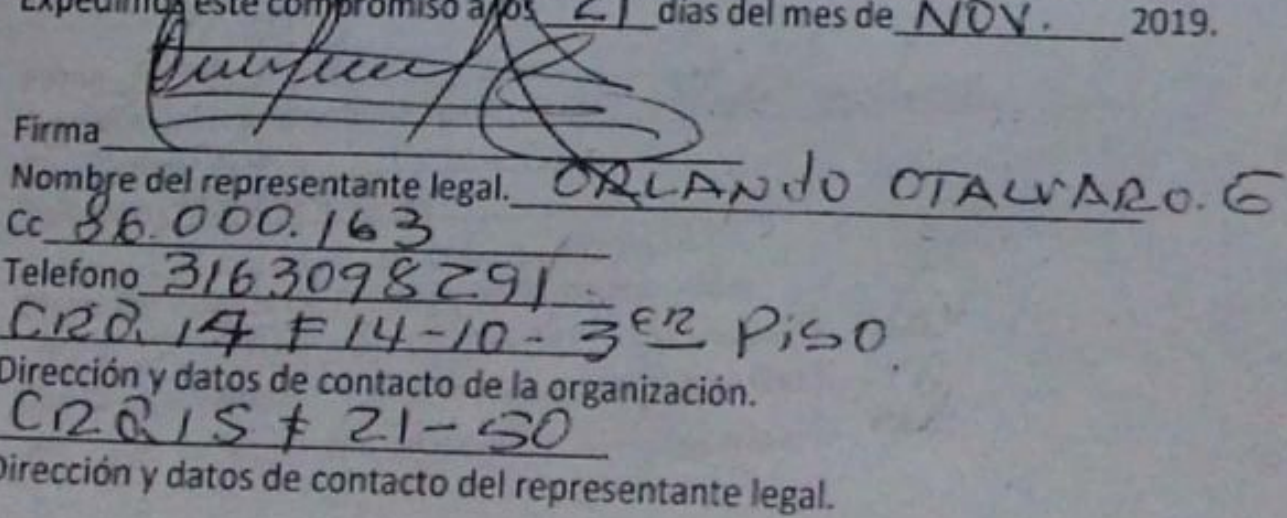 Expedimos este compromiso a los 21 días del mes de NOV. 2019.
Firma
Nombre del representante legal. ORLANdO OTALVARO. G
Cc 86.000.163
Telefono 3163098291.
CRa. 14 # 14-10-3ER PiSO.
Dirección y datos de contacto de la organización.
CRa 15 # 21-50
Dirección y datos de contacto del representante legal.